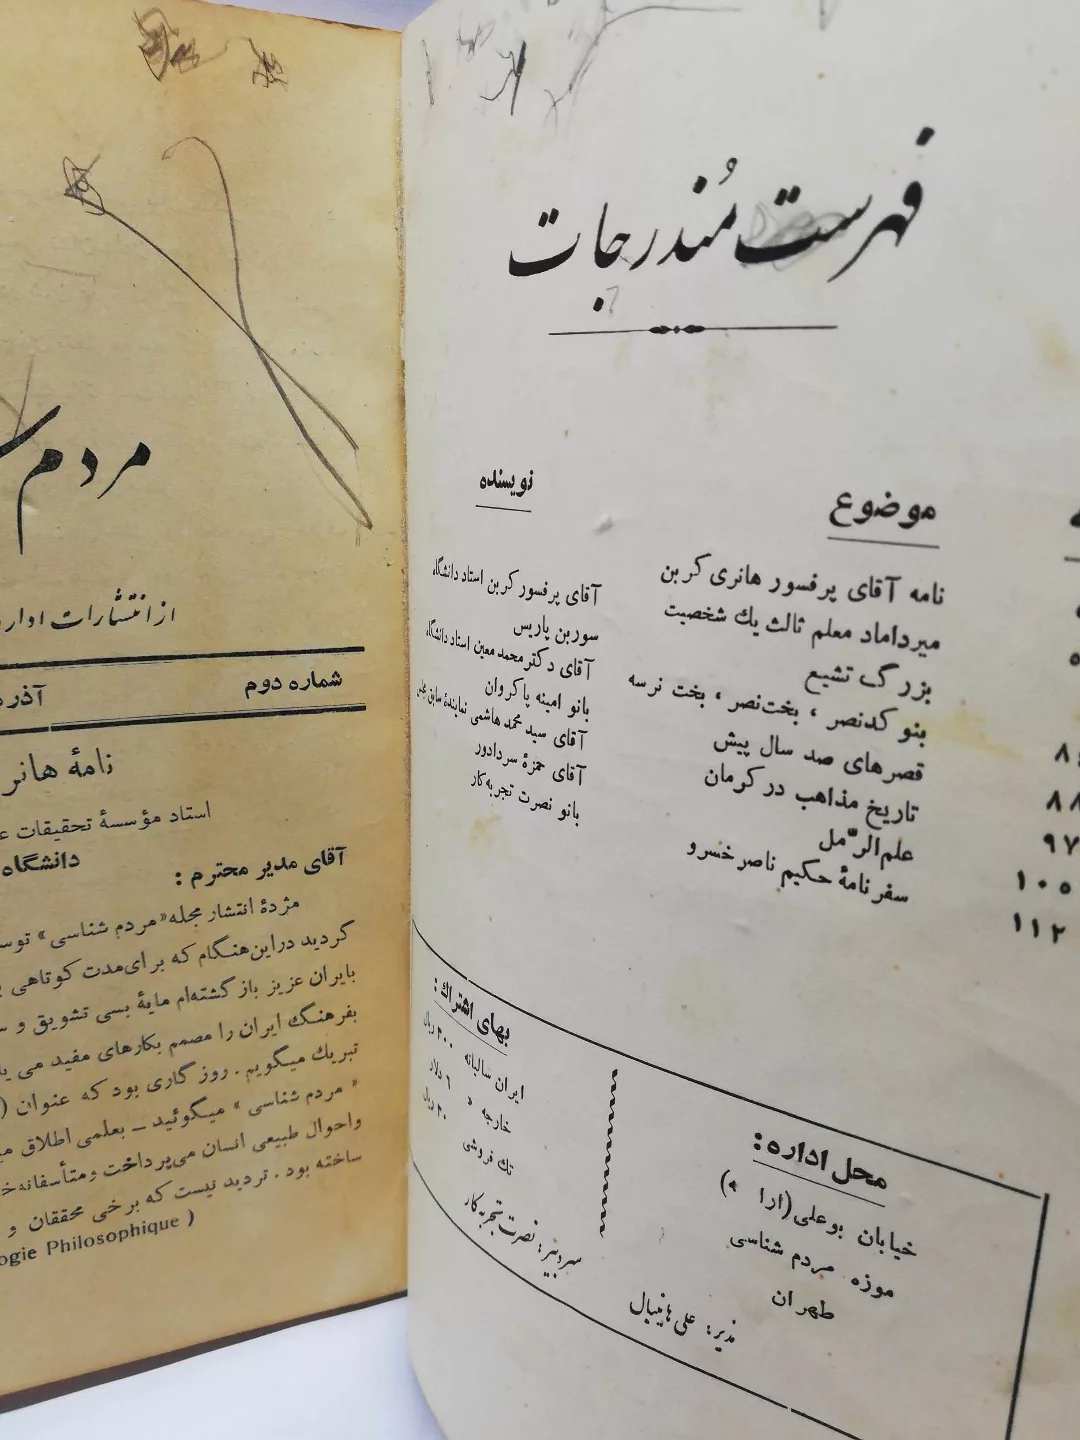 فهرست مُندرجات
موضوع
نویسنده
نامه آقای پرفسور هانری کربن
آقای پرفسور کربن استاد دانشگاه
سوربن پاریس
میرداماد معلم ثالث یك شخصیت
بزرگ تشیع
آقای دکتر محمد معین استاد دانشگاه
بنو کدنصر ، بخت‌نصر ، بخت نرسه
بانو امینه پاکروان
۸۸
قصرهای صد سال پیش
آقای سید محمد هاشمی نمایندهٔ سابق
۹۷
تاریخ مذاهب در کرمان
آقای حمزهٔ سردادور
۱۰۵
علم‌الرّمل
بانو نصرت تجربه‌کار
۱۱۲
سفرنامهٔ حکیم ناصرخسرو
محل اداره:
خیابان بوعلی
موزه مردم شناسی
طهران
بهای اشتراك:
ایران سالیانه ۲۰۰ ریال
خارجه » ۶ دلار
تك فروشی ۲۰ ریال
سردبیر: نصرت تجربه‌کار
مدیر: علی هانیبال
مردم
از انتشارات
شماره دوم
نامهٔ
استاد مؤسسهٔ تحقیقات
دانشگاه
آقای مدیر محترم :
مژدهٔ انتشار مجله «مردم شناسی»
گردید دراین‌هنگام که برای‌مدت کوتاهی
بایران عزیز باز گشته‌ام مایهٔ بسی تشویق و
بفرهنگ ایران را مصمم بکارهای مفید می
تبریك میگویم . روزگاری بود که عنوان (
« مردم شناسی » میگوئید ــ بعلمی اطلاق
واحوال طبیعی انسان می‌پرداخت ومتأسفانه
ساخته بود . تردید نیست که برخی محققان و
Philosophique )